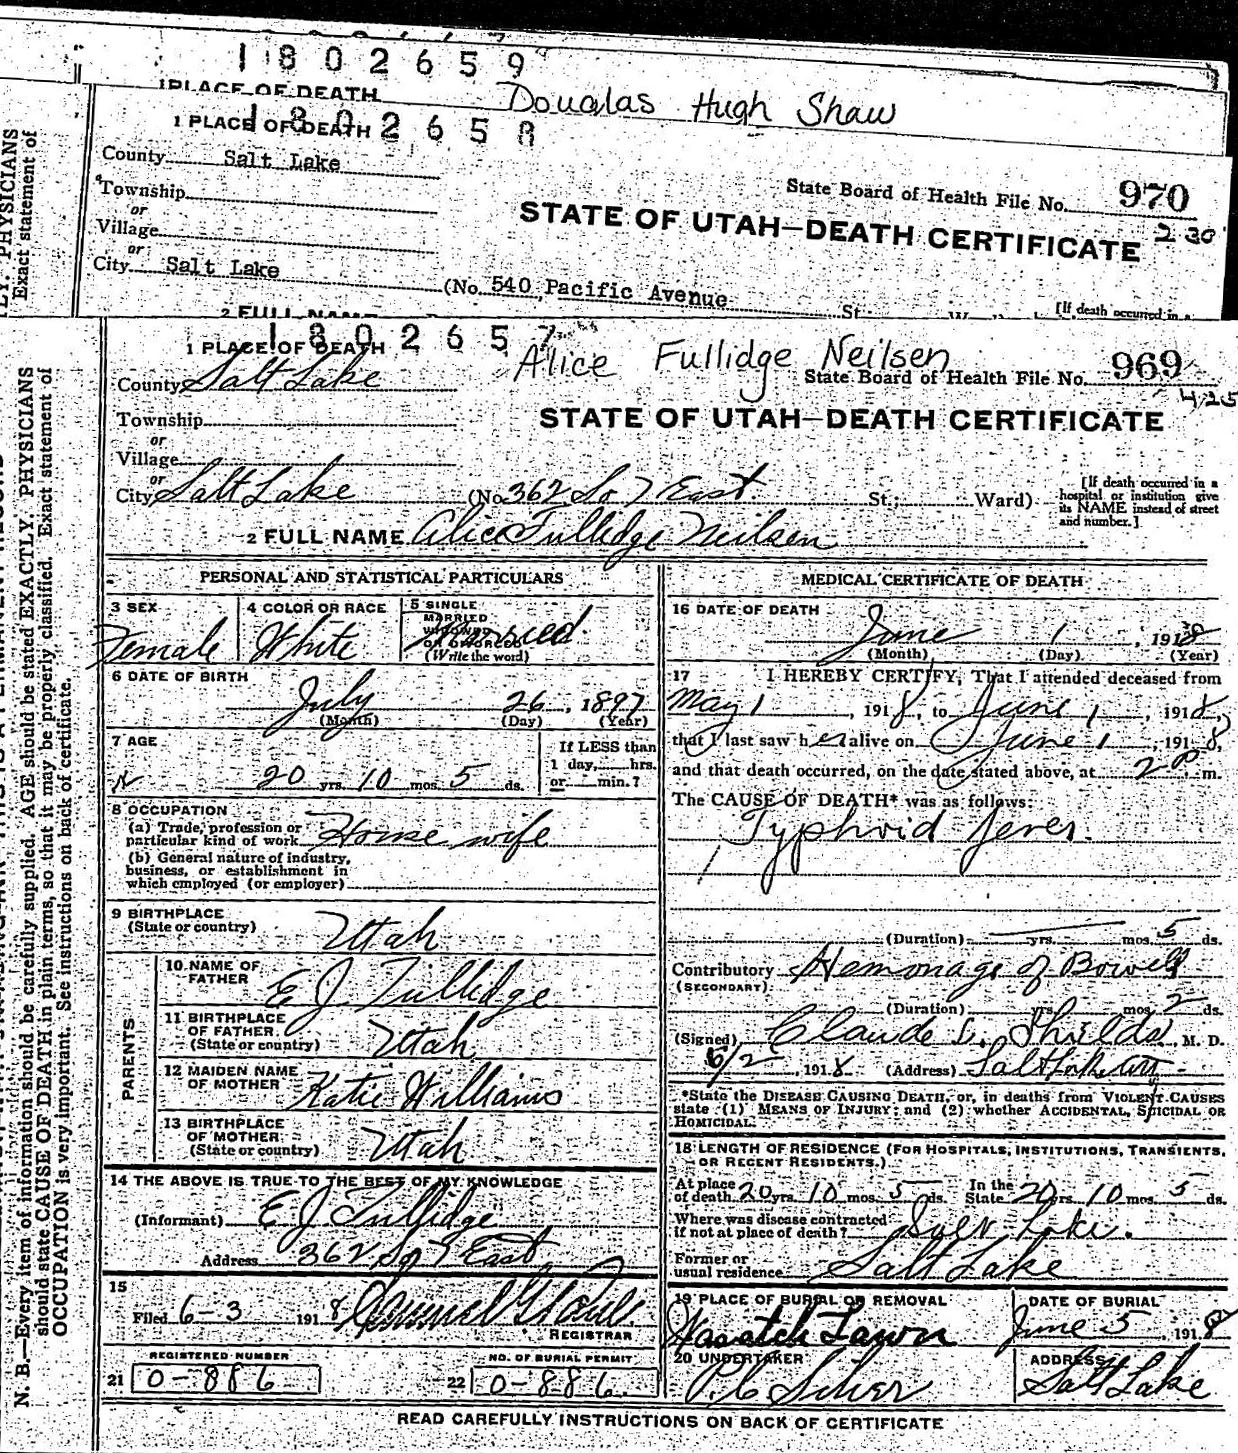 1802659
1 PLACE OF DEATH Douglas Hugh Shaw
1802658
1 PLACE OF DEATH
County Salt Lake
State Board of Health File No. 970
Township
or
STATE OF UTAH—DEATH CERTIFICATE 2 30
Village
or
City Salt Lake (No. 540 Pacific Avenue St.
[If death occurred in a
2 FULL NAME
1802657
1 PLACE OF DEATH Alice Fullidge Neilsen
County Salt Lake State Board of Health File No. 969
425
Township
STATE OF UTAH—DEATH CERTIFICATE
or
Village
or
City Salt Lake (No. 362 So 7 East St.; Ward)
[If death occurred in a hospital or institution give its NAME instead of street and number.]
2 FULL NAME Alice Tullidge Neilsen
PERSONAL AND STATISTICAL PARTICULARS
3 SEX Female
4 COLOR OR RACE White
5 SINGLE MARRIED WIDOWED OR DIVORCED (Write the word) Married
6 DATE OF BIRTH
July 26, 1897
(Month) (Day) (Year)
7 AGE
20 yrs. 10 mos. 5 ds.
If LESS than 1 day, hrs. or min.?
8 OCCUPATION
(a) Trade, profession or particular kind of work House wife
(b) General nature of industry, business, or establishment in which employed (or employer)
9 BIRTHPLACE (State or country) Utah
PARENTS
10 NAME OF FATHER E J Tullidge
11 BIRTHPLACE OF FATHER (State or country) Utah
12 MAIDEN NAME OF MOTHER Katie Williams
13 BIRTHPLACE OF MOTHER (State or country) Utah
14 THE ABOVE IS TRUE TO THE BEST OF MY KNOWLEDGE
(Informant) E J Tullidge
Address 362 So 7 East
15
Filed 6-3 1918
REGISTRAR
REGISTERED NUMBER
21 0-886
NO. OF BURIAL PERMIT
22 0-886
MEDICAL CERTIFICATE OF DEATH
16 DATE OF DEATH
June 1, 1918
(Month) (Day) (Year)
17 I HEREBY CERTIFY, That I attended deceased from
May 1, 1918, to June 1, 1918,
that I last saw her alive on June 1, 1918,
and that death occurred, on the date stated above, at 2 00 m.
The CAUSE OF DEATH* was as follows:
Typhoid fever.
(Duration) yrs. mos. 5 ds.
Contributory Hemorrage of Bowels
(SECONDARY)
(Duration) yrs. mos. 2 ds.
(Signed) Claude L. Shields, M. D.
6/2, 1918 (Address) Salt Lake
*State the DISEASE CAUSING DEATH, or, in deaths from VIOLENT CAUSES state (1) MEANS OF INJURY; and (2) whether ACCIDENTAL, SUICIDAL OR HOMICIDAL.
18 LENGTH OF RESIDENCE (FOR HOSPITALS, INSTITUTIONS, TRANSIENTS, OR RECENT RESIDENTS.)
At place of death 20 yrs. 10 mos. 5 ds. In the State 20 yrs. 10 mos. 5 ds.
Where was disease contracted if not at place of death? Lake.
Former or usual residence Salt Lake
19 PLACE OF BURIAL OR REMOVAL Wasatch Lawn
DATE OF BURIAL June 5, 1918
20 UNDERTAKER
ADDRESS Salt Lake
READ CAREFULLY INSTRUCTIONS ON BACK OF CERTIFICATE
PHYSICIANS
Exact statement of
N. B.—Every item of information should be carefully supplied. AGE should be stated EXACTLY. PHYSICIANS
should state CAUSE OF DEATH in plain terms, so that it may be properly classified. Exact statement of
OCCUPATION is very important. See instructions on back of certificate.